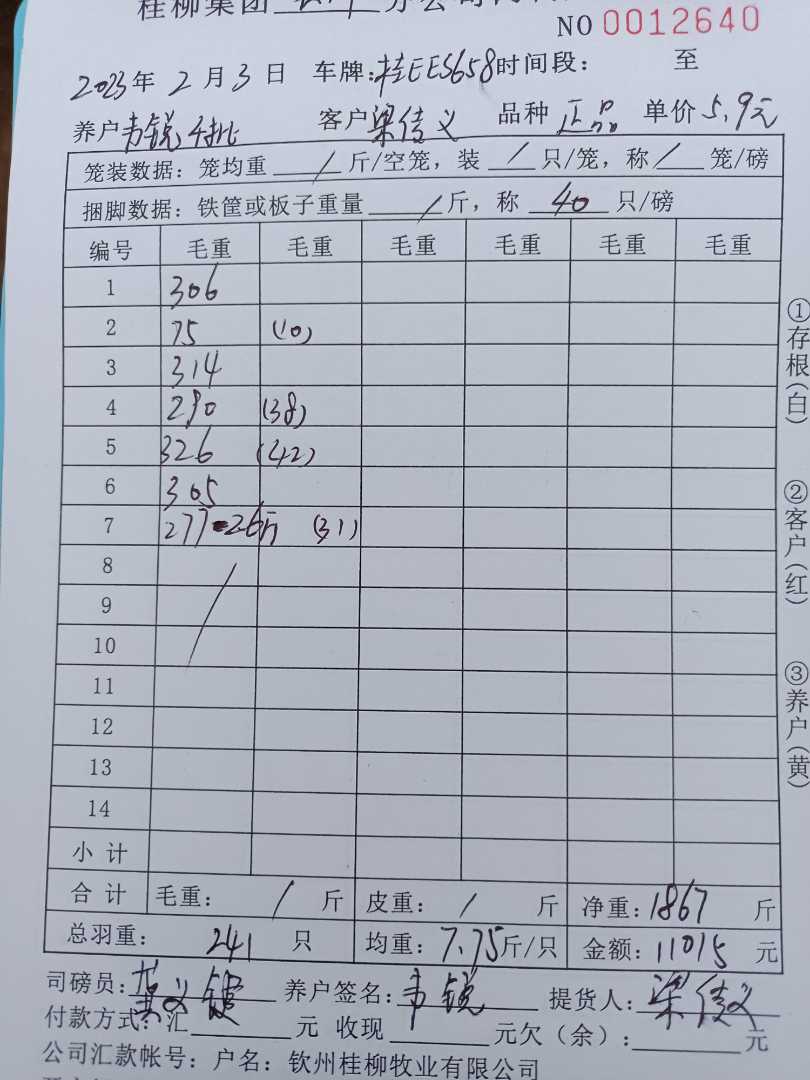 桂柳集团 分公司
NO 0012640
2023年 2月3日 车牌:桂EES658时间段: 至
养户韦锐 客户梁传义 品种 正品 单价5.9元
笼装数据:笼均重 / 斤/空笼,装 / 只/笼,称 / 笼/磅
捆脚数据:铁筐或板子重量 / 斤,称 40 只/磅
编号 毛重 毛重 毛重 毛重 毛重 毛重
1 306
2 75 (10)
3 314
4 290 (38)
5 326 (42)
6 305
7 277-26斤 (31)
8
9
10
11
12
13
14
小计
合计 毛重: / 斤 皮重: / 斤 净重:1867 斤
总羽重: 241 只 均重:7.75斤/只 金额:11015 元
司磅员: 养户签名:韦锐 提货人:梁传义
付款方式:汇 元 收现 元欠(余): 元
公司汇款帐号:户名:钦州桂柳牧业有限公司
①存根(白)
②客户(红)
③养户(黄)